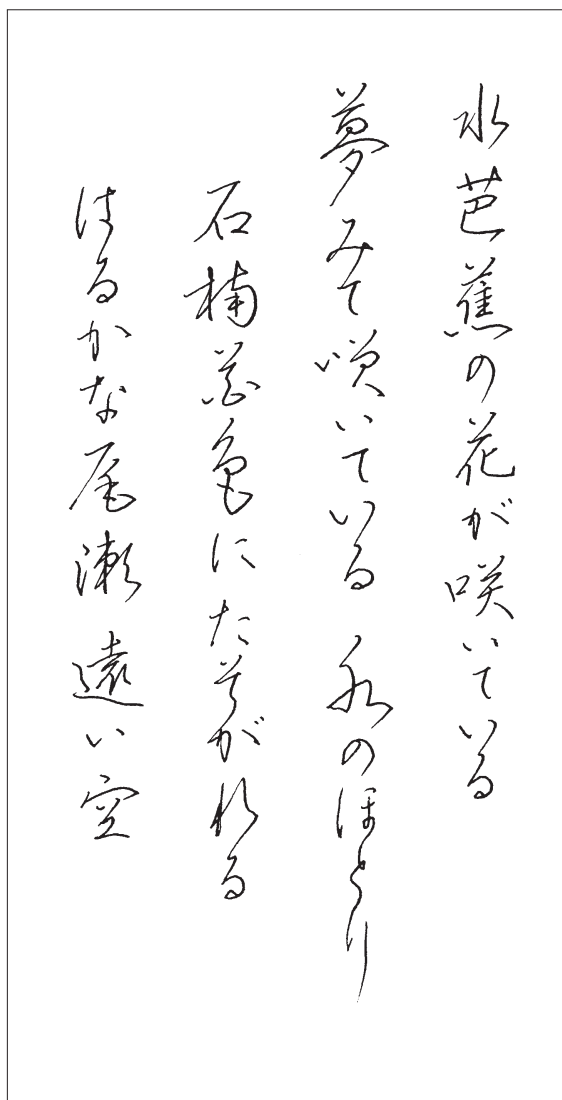 水芭蕉の花が咲いている
夢みて咲いている 水のほとり
石楠花色にたそがれる
はるかな尾瀬 遠い空